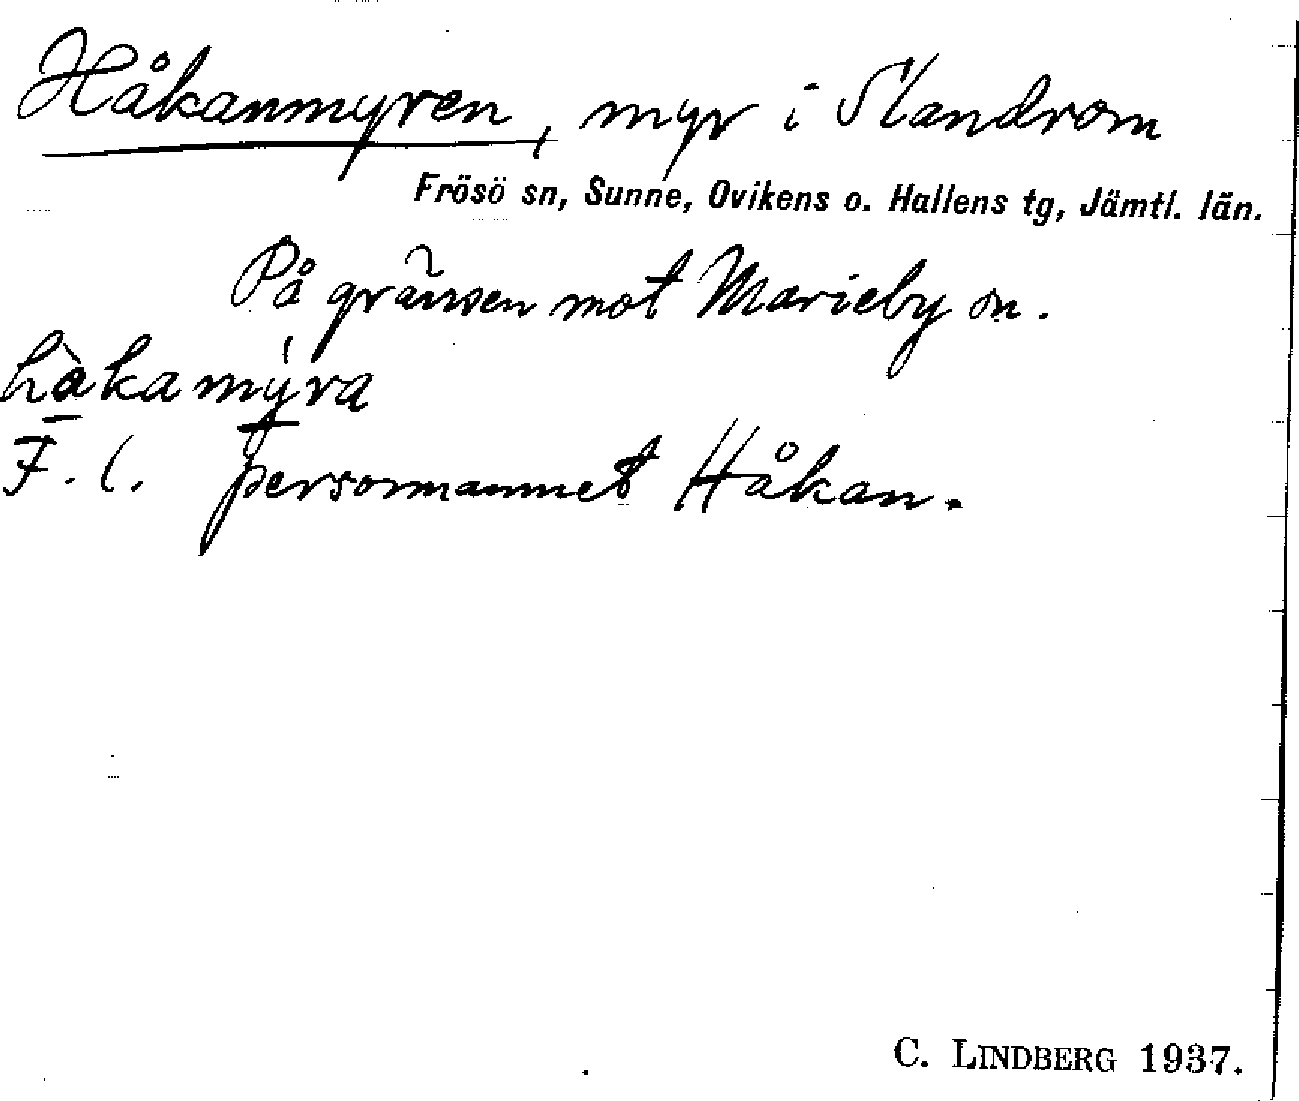 Håkanmyren, myr i Slandrom
Frösö sn, Sunne, Ovikens o. Hallens tg, Jämtl. län.
På gränsen mot Marieby sn.
hàkamýra
F. l. personnamnet Håkan.
C. LINDBERG 1937.